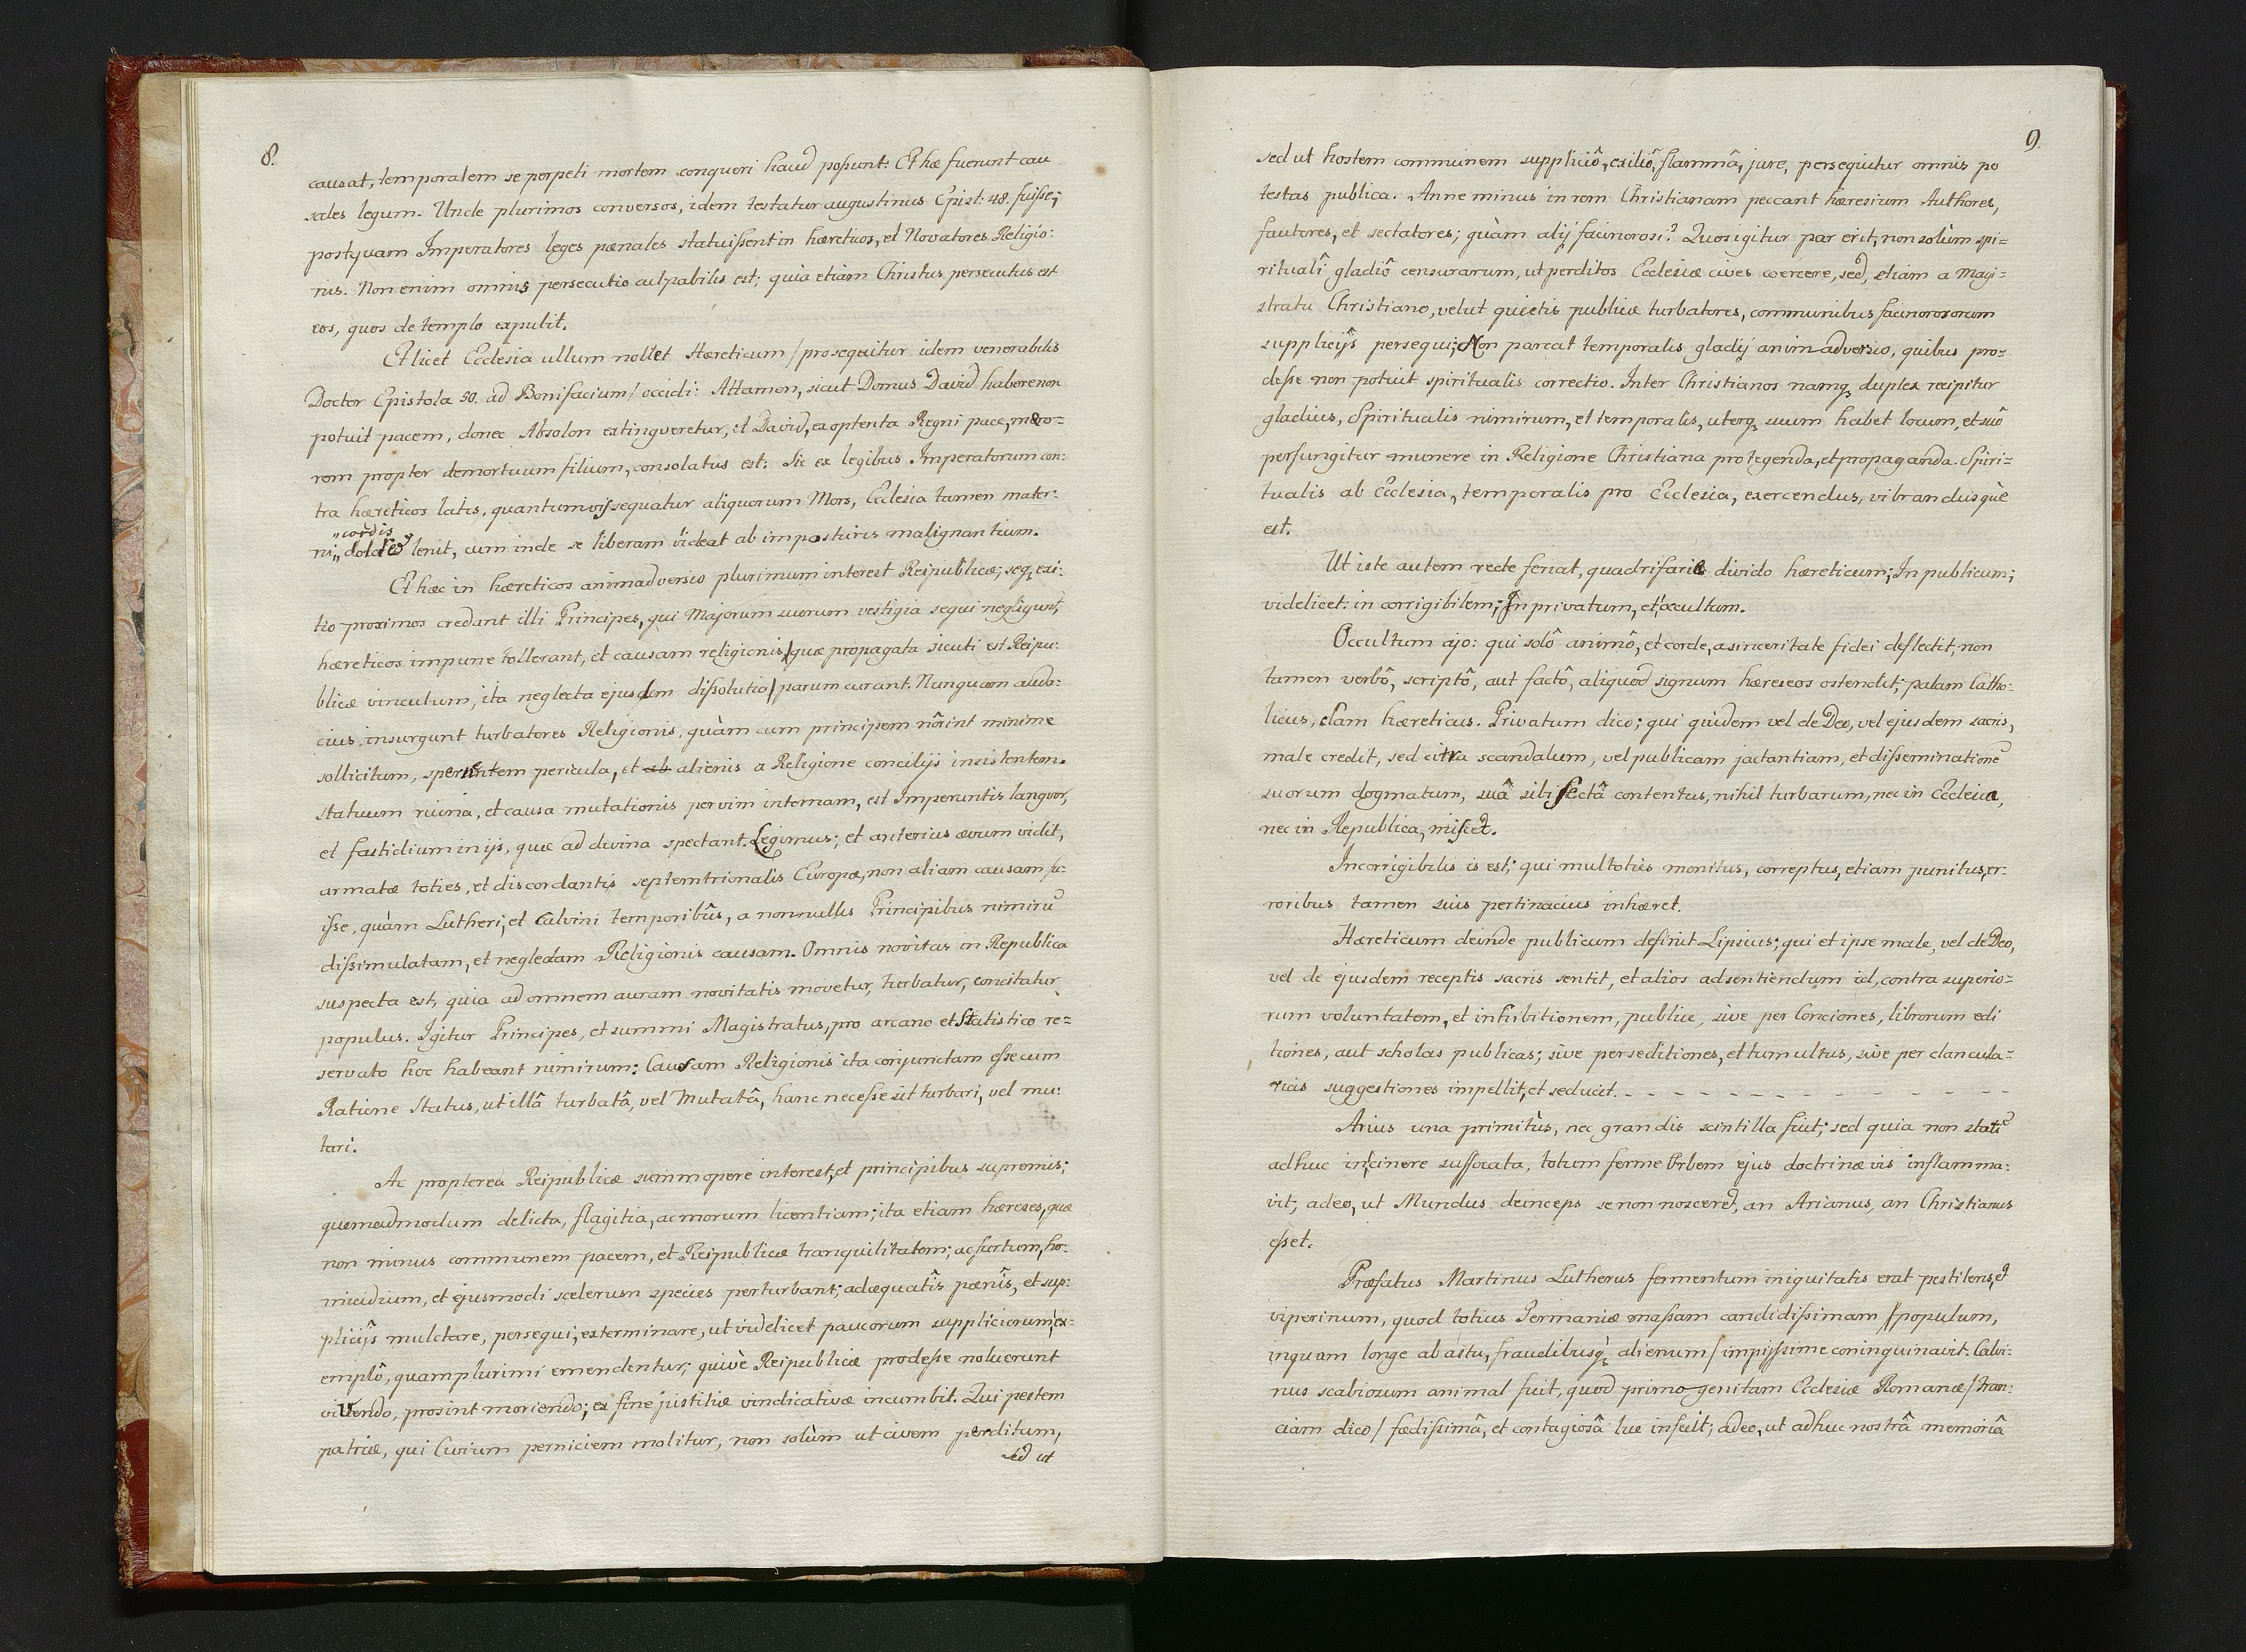 8.
causat, temporalem se perpeti mortem conqueri haud possunt: Et hæ fuerunt cau
sales legum. Unde plurimos conversos, idem testatur augustinus Epist: 48. fuisse;
postquam Imperatores leges pænales statuissent in hæreticos, et Novatores Religio:
nis. Non enim omnis persecutio culpabilis est; quia etiam Christus persecutus est
eos, quos de templo expulit.
Et licet Ecclesia ullum nollet Hæreticum / prosequitur idem venerabilis
Doctor Epistola 50. ad Bonifacium / occidi: Attamen, sicut Domus David habere non
potuit pacem, donec Absolon extingveretur, et David, ex optenta Regni pace, mæro=
rem propter demortuum filium, consolatus est: Sic ex legibus Imperatorum con:
tra hæreticos latis, quantumvis sequatur aliquorum Mors, Ecclesia tamen mater:
„cordis
ni„ dolores lenit, cum inde se liberam videat ab imposturis malignantium.
Et hæc in hæreticos animadversio plurimum interest Reipublicæ; seq, exi:
tio proximos credant illi Principes, qui Majorum suorum vestigia sequi negligunt,
hæreticos impune tollerant, et causam religionis / quæ propagata sicuti est Reipu:
blicæ vinculum, ita neglecta ejusdem dissolutio / parum curant. Nunquam auda:
cius insurgunt turbatores Religionis, quàm cum principem nôrint minime
sollicitum, spernentem pericula, et ab alienis a Religione concilijs insistentem.
statuum ruina, et causa mutationis per vim internam, est Imperantis languor,
et fastidium in ijs, quæ ad divina spectant. Legimus; et anterius ævum vidit,
armatæ toties, et discordantis septemtrionalis Europæ, non aliam causam fu:
isse, quàm Lutheri, et Calvini temporibûs, a nonnullis Principibus nimirũ
dissimulatam, et neglectam Religionis causam. Omnis novitas in Republica
suspecta est, quia ad omnem auram novitatis movetur, turbatur, concitatur
populus. Igitur Principes, et summi Magistratus, pro arcano et Statistico re=
servato hoc habeant nimirum: Causam Religionis ita conjunctam esse cum
Ratione Status, ut illâ turbatâ, vel Mutatâ, hanc necesse sit turbari, vel mu:
tari.
Ac propterea Reipublicæ summopere interest, et principibus supremis;
quemadmodum delicta, flagitia, ac morum licentiam; ita etiam hæreses, quæ
non minus communem pacem, et Reipublicæ tranquilitatem; ac furtum, ho:
micidium, et ejusmodi scelerum species perturbant; adæquatîs pænîs, et sup:
plicijs mulctare, persequi, exterminare, ut videlicet paucorum suppliciorum, ex=
emplô, quamplurimi emendentur; quivè Reipublicæ prodesse noluerunt
vivendo, prosint moriendo; ex fine justitiæ vindicativæ incumbit. Qui pestem
patriæ, qui Civium perniciem molitur, non solùm ut civem perditum,
sed ut
9.
sed ut hostem communem suppliciô, exiliô, flammâ, jure, persequitur omnis po
testas publica. Anne minus in rem Christianam peccant hæresium Authores,
fautores, et sectatores; quàm alij facinorosi? Quos igitur par erit, non solùm spi=
ritualî gladiô censurarum, ut perditos Ecclesiæ cives coercere, sed, etiam a Magi=
stratu Christiano, velut quietis publicæ turbatores, communibus facinorosorum
supplicijs persequi; Non parcat temporalis gladij animadversio, quibus pro=
desse non potuit spiritualis correctio. Inter Christianos namq, duplex recipitur
gladius, Spiritualis nimirum, et temporalis, uterq, suum habet locum, et suô
perfungitur munere in Religione Christiana protegenda, et propaganda. Spiri=
tualis ab Ecclesia, temporalis pro Ecclesia, exercendus, vibrandusquè
est.
Ut iste autem recte feriat, quadrifarie divido hæreticum; In publicum;
videlicet: in corrigibilem; In privatum, et occultum.
Occultum ajo: qui solô animô, et corde, a sinceritate fidei deflectit, non
tamen verbô, scriptô, aut factô, aliquod signum hæreseos ostendit; palam Catho:
licus, clam hæreticus. Privatum dico; qui quidem vel de Deo, vel ejusdem sacris,
male credit, sed citra scandalum, vel publicam jactantiam, et disseminationẽ
suorum dogmatum, suâ sibi sectâ contentus, nihil turbarum, nec in Ecclesia,
nec in Republica, miscet.
Incorrigibilis is est; qui multoties monitus, correptus, etiam punitus, er:
roribus tamen suis pertinacius inhæret.
Hæreticum deinde publicum definit Lipsius; qui et ipse male, vel de Deo,
vel de ejusdem receptis sacris sentit, et alios ad sentiendum id, contra superio=
rum voluntatem, et inhibitionem, publice, sive per Conciones, librorum edi
tiones, aut scholas publicas; sive per seditiones, et tumultus, sive per clancula=
rias suggestiones impellit, et seducit. - - - - - - - - - - - -
Arius una primitùs, nec grandis scintilla fuit; sed quia non statĩ
adhuc in cinere suffocata, totum ferme Orbem ejus doctrinæ vis inflamma:
vit; adeo, ut Mundus deinceps se non nosceret, an Arianus, an Christianus
esset.
Præfatus Martinus Lutherus fermentum iniquitatis erat pestilens, et
viperinum, quod totius Germaniæ massam candidissimam / populum,
inquam longe ab astu, fraudibusq, alienum / impijssime coninquinavit. Calvi:
nus scabiosum animal fuit, quod primo-genitam Ecclesiæ Romanæ / Fran:
ciam dico / fædissimâ, et contagiosâ lue infecit; adeo, ut adhuc nostrâ memoriâ